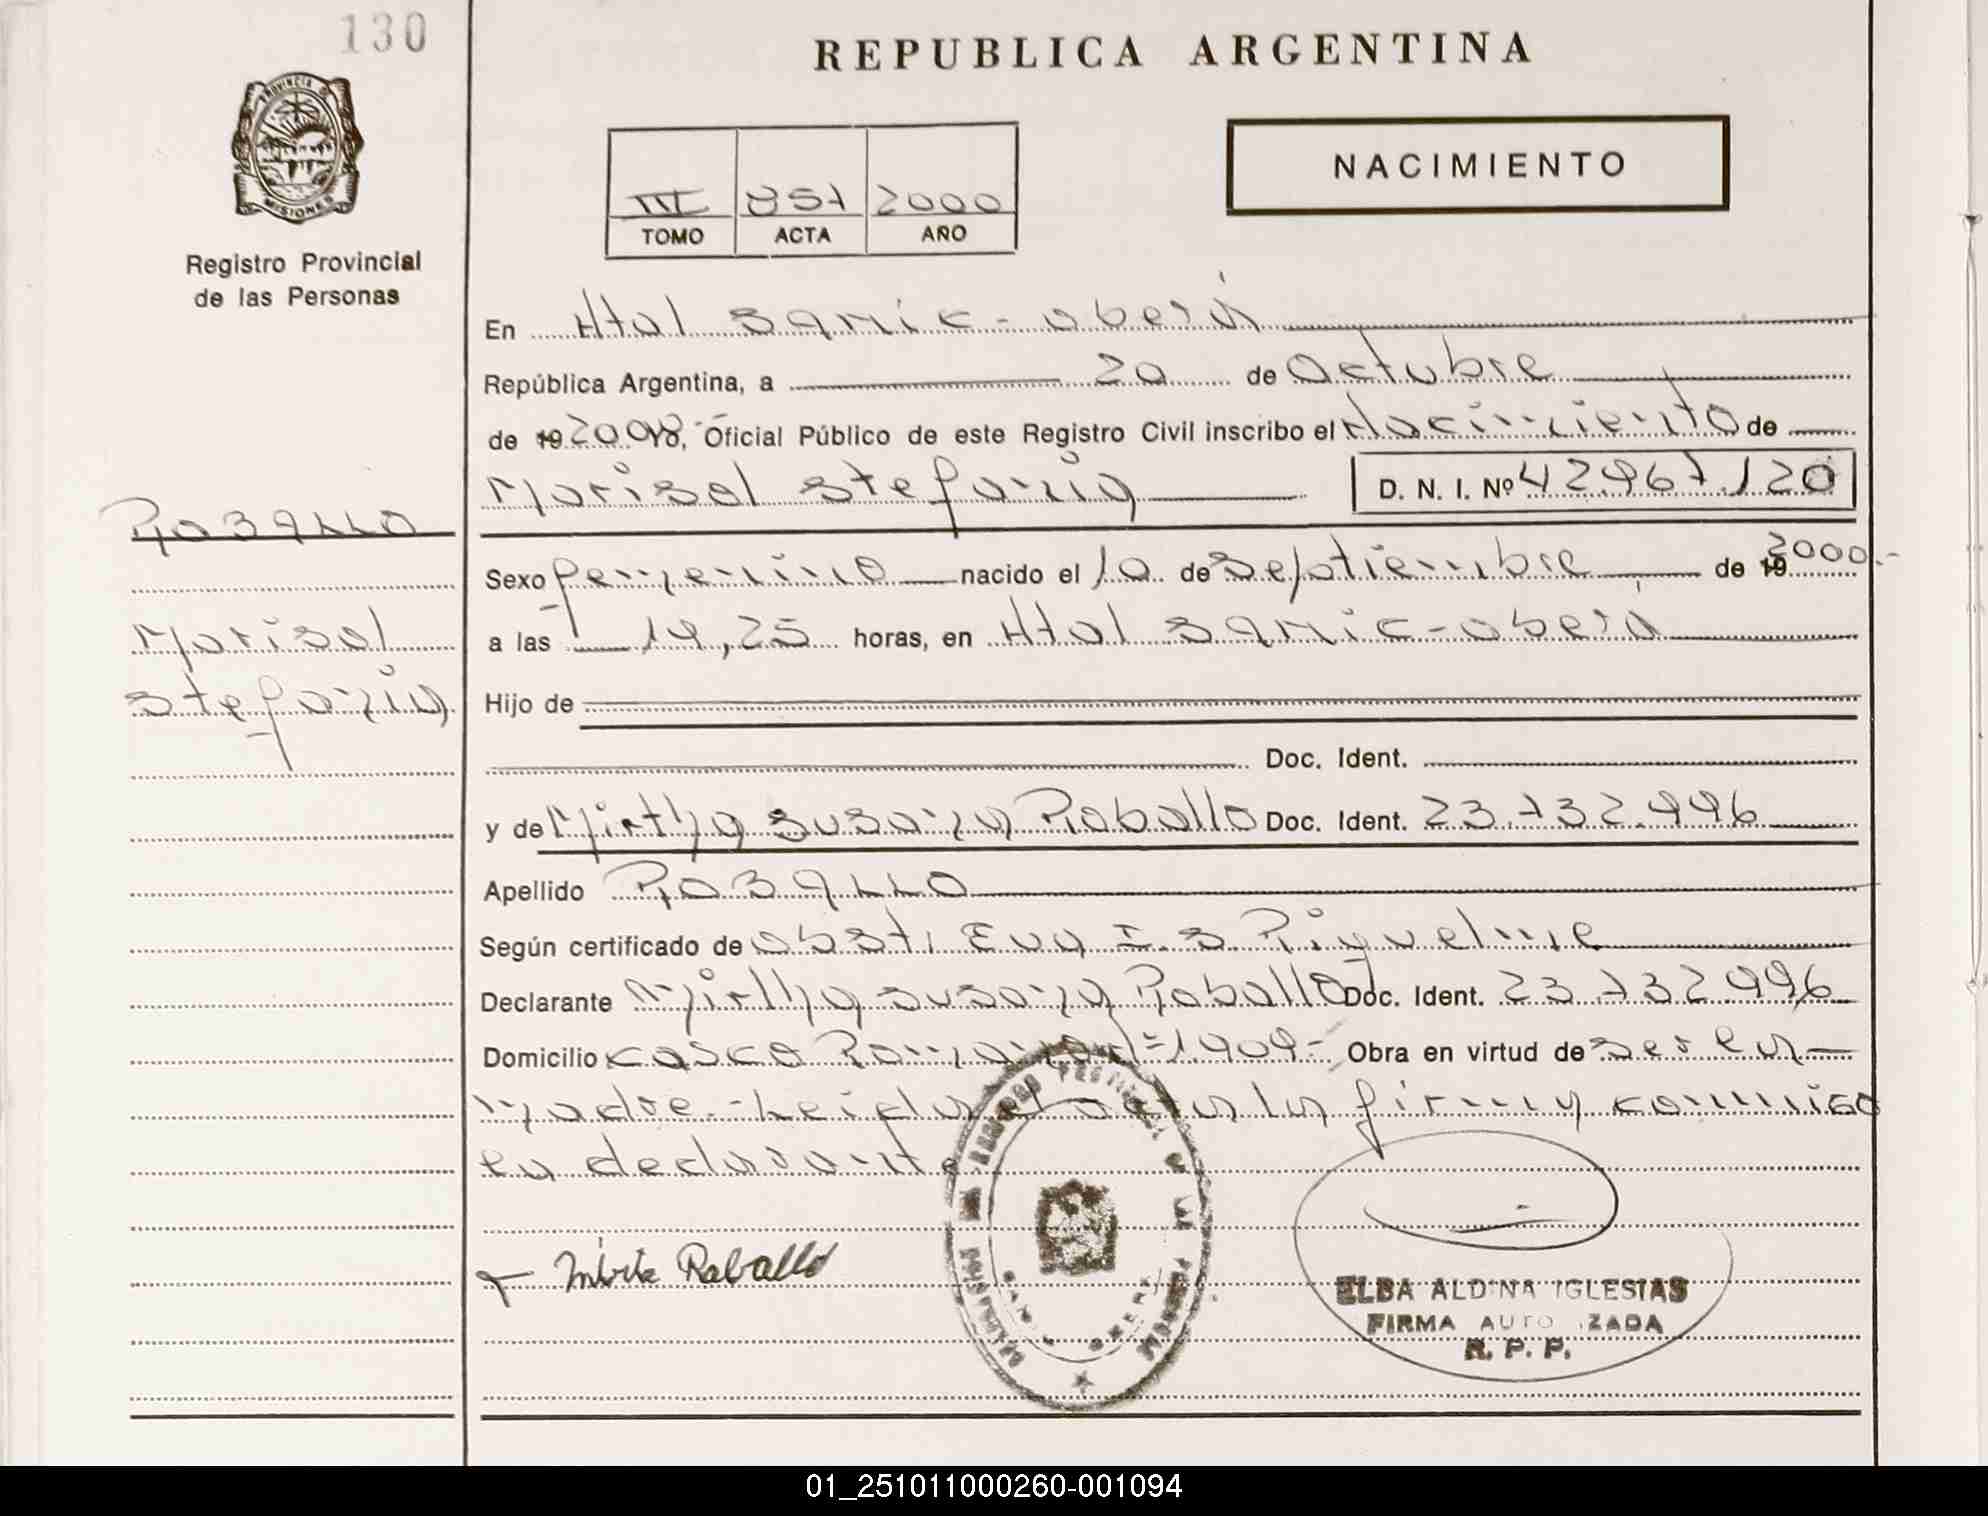 130
REPUBLICA ARGENTINA
PROVINCIA DE
MISIONES
Registro Provincial
de las Personas
III 857 2000
TOMO ACTA AÑO
NACIMIENTO
En Htal Samic - oberá
República Argentina, a 20 de Octubre
de 19 2000, Oficial Público de este Registro Civil inscribo el Nacimiento de
Marisol Stefania D. N. I. Nº 42.967.120
RABALLO
Marisol
Stefania
Sexo femenino nacido el 10 de Septiembre de 19 2000.-
a las 14,25 horas, en Htal Samic - oberá
Hijo de
Doc. Ident.
y de Mirtha Susana Raballo Doc. Ident. 23.732.996
Apellido RABALLO
Según certificado de obst. Eva I. S. Riquelme
Declarante Mirtha Susana Raballo Doc. Ident. 23.732.996
Domicilio casco 1909- Obra en virtud de ser la
madre.- Leida el acta la firma conmigo
la declarante
Mirta Raballo
ELBA ALDINA IGLESIAS
FIRMA AUTORIZADA
R. P. P.
01_251011000260-001094